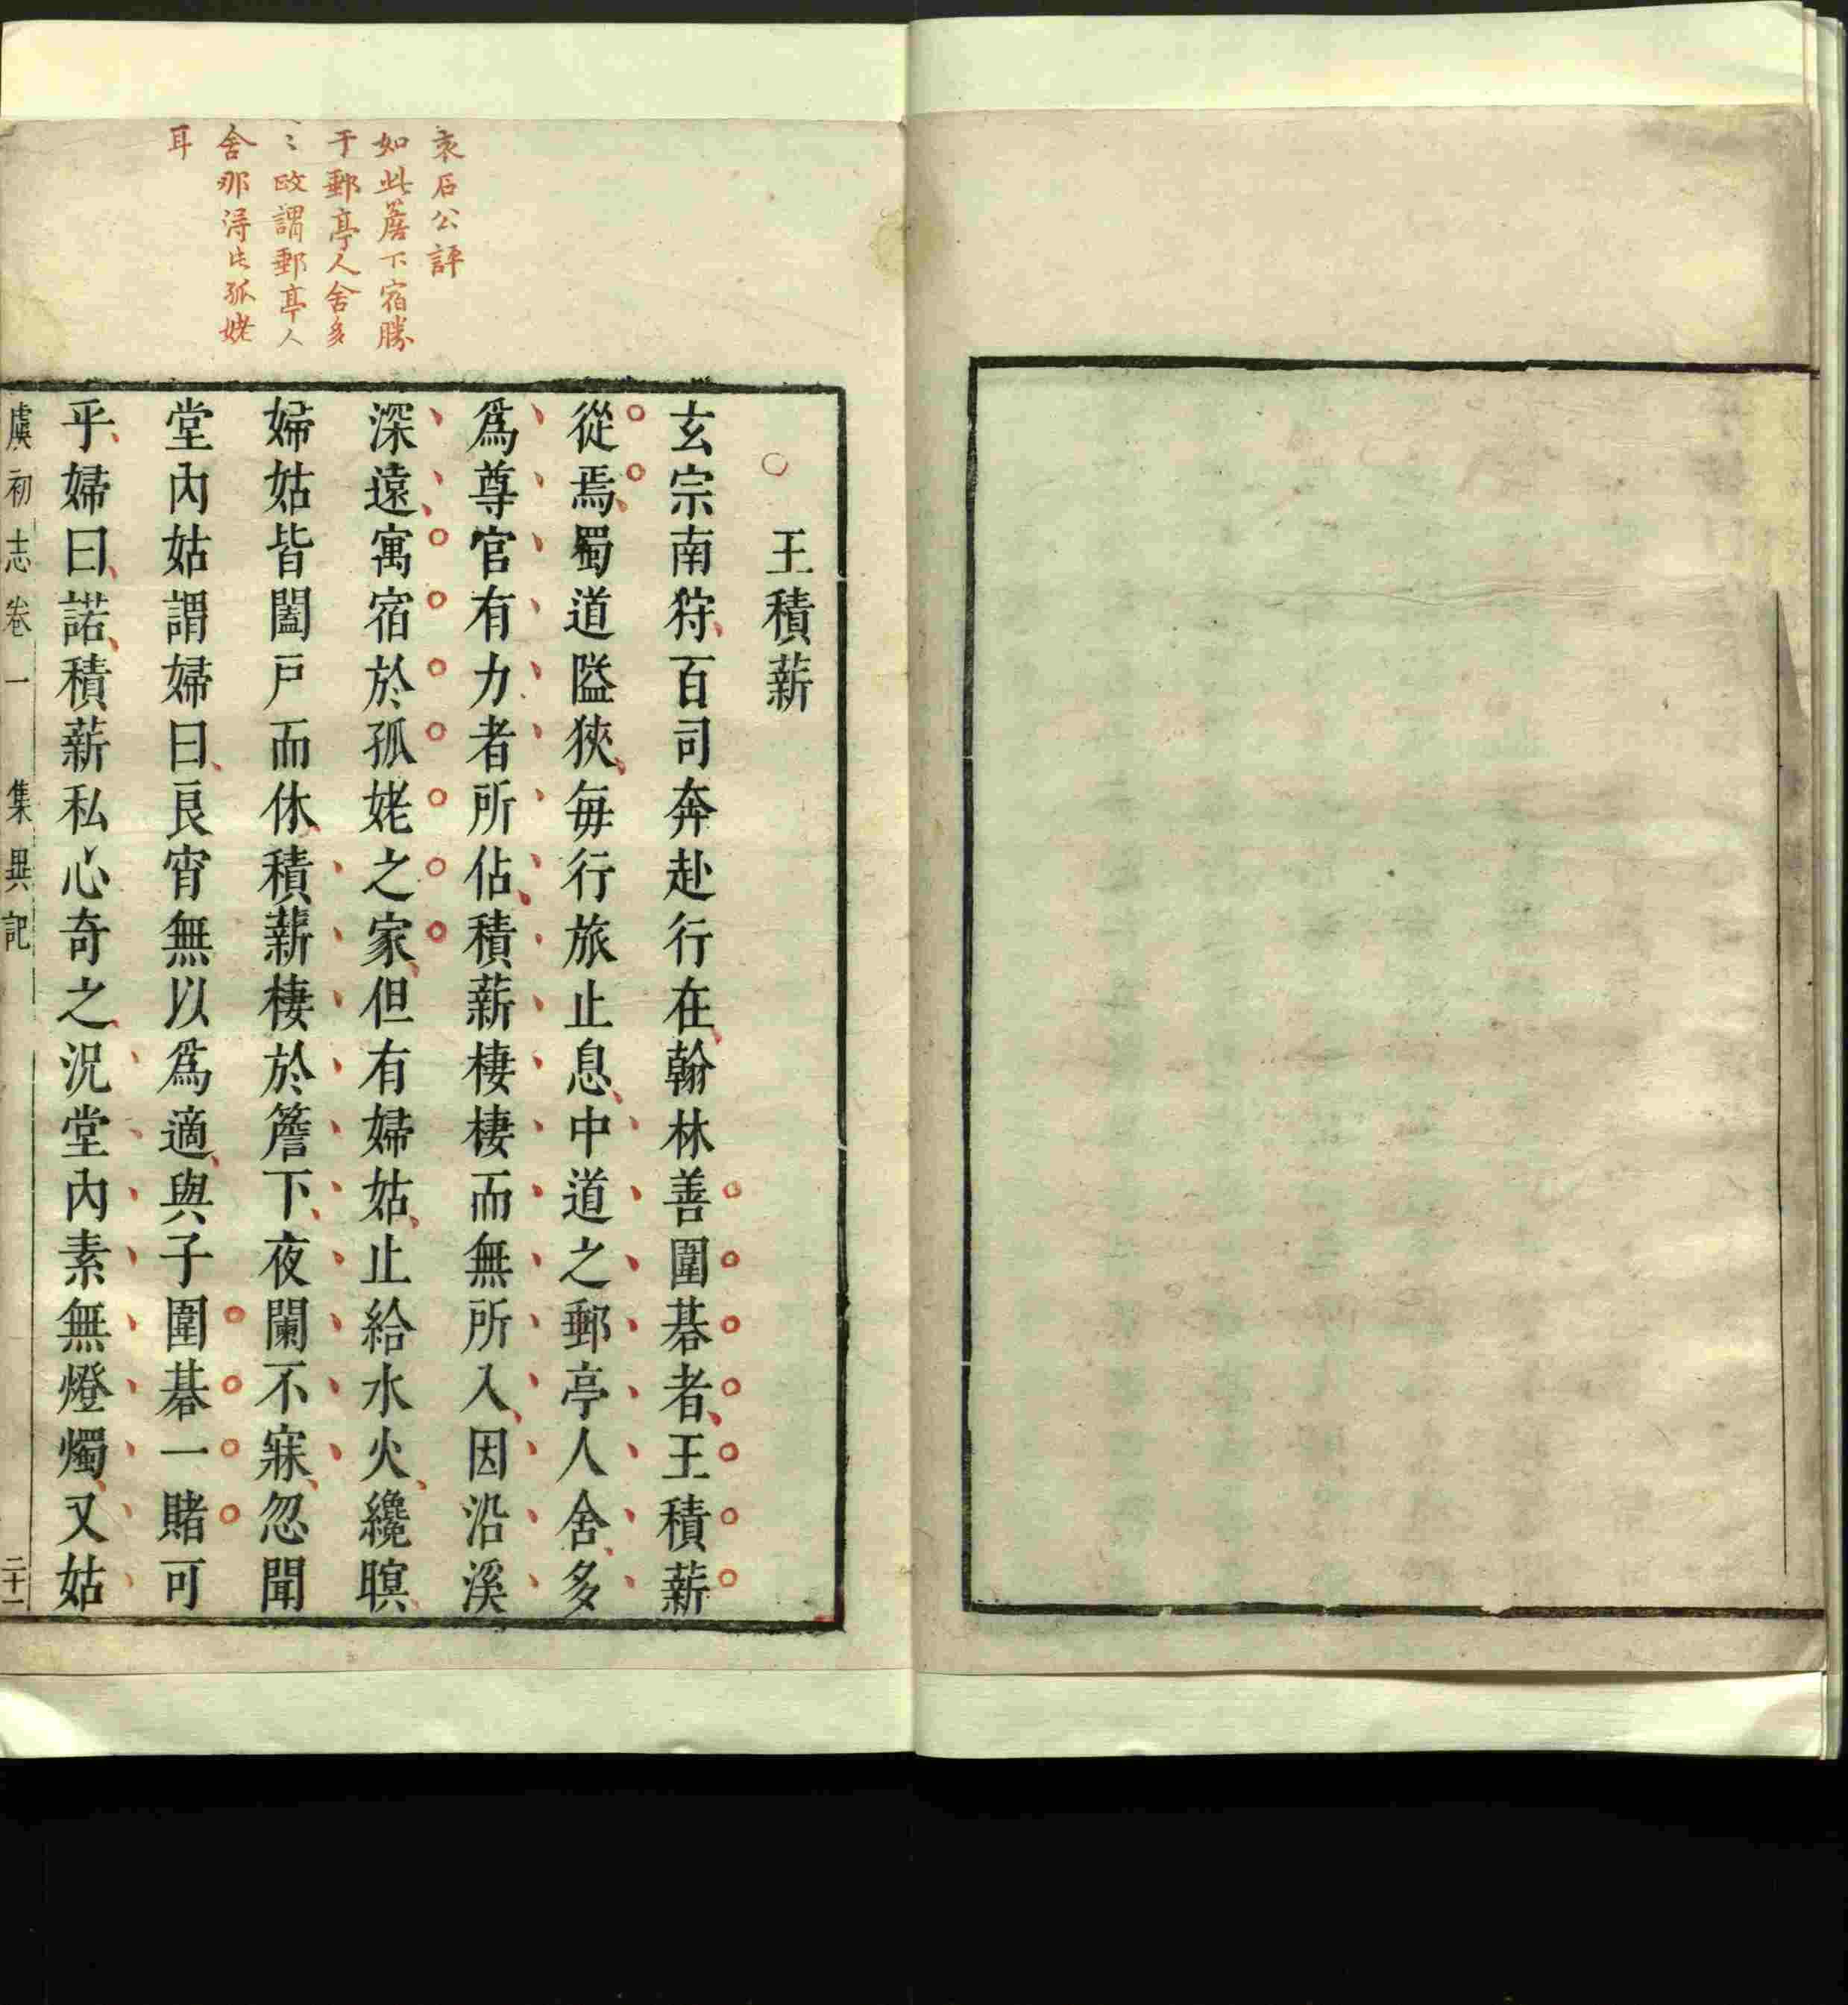 袁石公評
如此簷下宿勝
于郵亭人舍多
〻政謂郵亭人
舍那得此孤姥
耳
王積薪
玄宗南狩百司奔赴行在翰林善圍碁者王積薪
從焉蜀道隘狹每行旅止息中道之郵亭人舍多
爲尊官有力者所佔積薪棲棲而無所入因沿溪
深遠寓宿於孤姥之家但有婦姑止給水火纔暝
婦姑皆闔戸而休積薪棲於簷下夜闌不寐忽聞
堂內姑謂婦曰良宵無以爲適與子圍碁一賭可
乎婦曰諾積薪私心奇之況堂內素無燈燭又姑
虞初志卷一 集異記 二十一